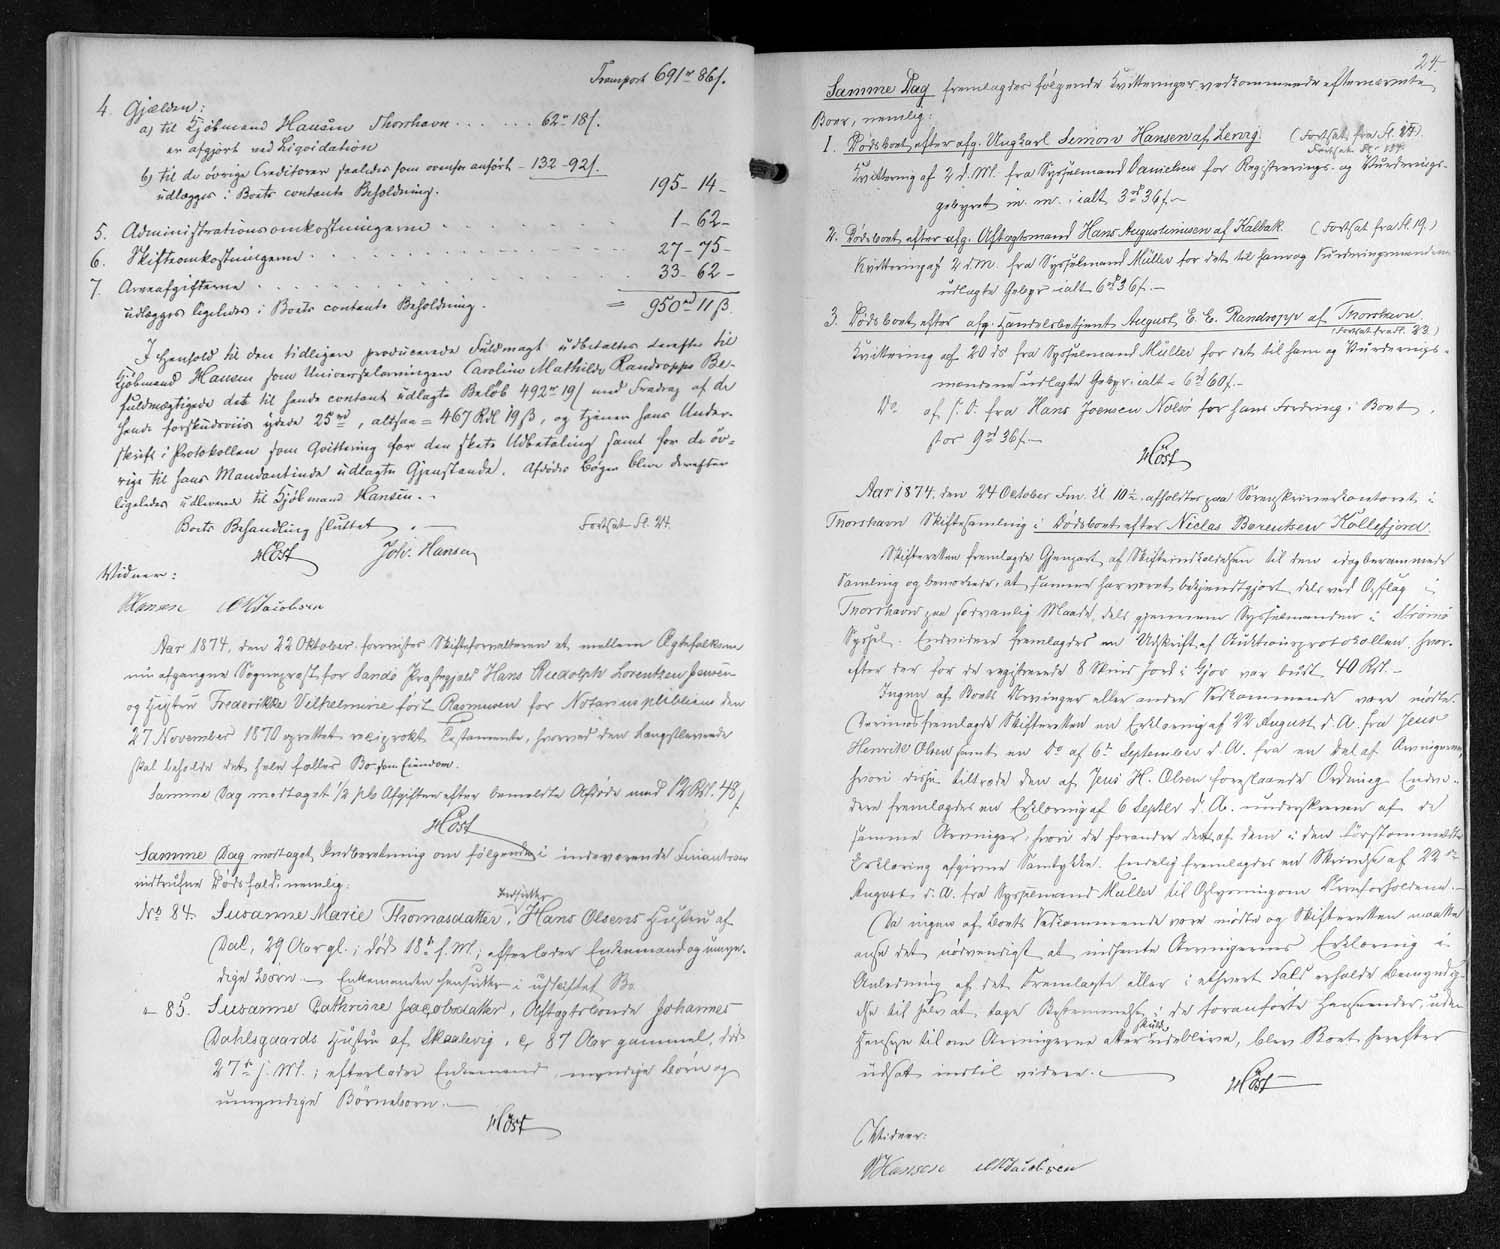 Transport 691 rd 86 s.
4. Gjælden:
a) til Kjøbmand Hansen Thorshavn . . . . . . 62 rd 18 s.
er afgjort ved Liqvidation
b) til de øvrige Creditorer saaledes som ovenfor anført - 132-92 s.
udlægges i Boets contante Beholdning. 195-14-
5. Administrationsomkostningerne . . . . . 1-62-
6. Skifteomkostningerne . . . . . 27-75-
7. Arveafgifterne . . . . . 33-62-
udlægges ligeledes i Boets contante Beholdning. = 950 rd 11 ß.
I Henhold til den tidligere producerede Fuldmagt udbetaltes derefter til
Kjøbmand Hansen som Universalarvingen Caroline Mathilde Randropps Be-
fuldmægtigede det til hende contant udlagte Beløb 492 rd 19 s med Fradrag af de
hende forskudsviis ydede 25 rd, altsaa = 467 Rdl 19 ß, og tjener hans Under-
skrift i Protokollen som Qvittering for den skete Udbetaling samt for de øv-
rige til hans Mandantinde udlagte Gjenstande. Afdødes Bøger blive derefter
ligeledes udleverede til Kjøbmand Hansen. -
Boets Behandling sluttet. - Fortsat Fl. 27.
Høst Joh. Hansen
Vidner:
Hansen Jacobsen
Aar 1874, den 22 Oktober, forevistes Skifteforvalteren et mellem Ægtefolkene
nu afgangne Sogneprest for Sandø Præstegjæld Hans Rudolph Lorentzen Jensen
og Hustru Frederikke Vilhelmine født Rasmussen for Notarius publicus den
27 November 1870 oprettet reciprokt Testamente, hvorved den Længstlevende
skal beholde det hele fælles Bo som Eiendom.
Samme Dag modtaget 1/2 pCt Afgiften efter bemeldte Afdøde med 12 Rdl. 48 s.
Høst
Samme Dag modtaget Indberetning om følgende i indeværende Finantsaar
indtrufne Dødsfald, nemlig:
No 84. Susanne Marie Thomasdatter, Indsidder Hans Olsens Hustru af
Dal, 29 Aar gl.; død 18de f. M.; efterlader Enkemand og umyn-
dige Børn. - Enkemanden hensidder i uskiftet Bo.
" 85. Susanne Cathrine Jacobsdatter, Aftægtsbonde Johannes
Dahlsgaards Hustru af Skaalevig, 87 Aar gammel, død
27de f. M.; efterlader Enkemand, myndige Børn og
umyndige Børnebørn. -
Høst
24.
Samme Dag fremlagdes følgende Kvitteringer vedkommende efternævnte
Boer, nemlig:
1. Dødsboet efter afg. Ungkarl Simon Hansen af Lervig. (Fortsat fra Fl. 17).
Fortsat Fl.
Kvittering af 2 d. M. fra Sysselmand Danielsen for Registrerings- og Vurderings-
gebyret m. m. i alt 3 rd 36 s. -
2. Dødsboet efter afg. Aftægtsmand Hans Augustinusen af Kalbak. (Fortsat fra Fl. 19.)
Kvittering af 2 d. M. fra Sysselmand Müller for det til ham og Vurderingsmændene
udlagte Gebyr i alt 6 rd 36 s. -
3. Dødsboet efter afg. Handelsbetjent August E. E. Randropp af Thorshavn.
(Fortsat fra Fl. 23.)
Kvittering af 20 ds fra Sysselmand Müller for det til ham og Vurderings-
mændene udlagte Gebyr i alt = 6 rd 60 s. -
Do. af s. D. fra Hans Joensen Nolsø for hans Fordring i Boet,
stor 9 rd 36 s. -
Høst
Aar 1874, den 24 October Fm. Kl 10 1/2 afholdtes paa Sorenskriverkontoret i
Thorshavn Skiftesamling i Dødsboet efter Niclas Berentsen Kollefjord.
Skifteretten fremlagde Gjenpart af Skifteindkaldelsen til den idag berammede
Samling og bemærkede, at samme har været bekjendtgjort dels ved Opslag i
Thorshavn paa sædvanlig Maade, dels gjennem Sysselmanden i Strømø
Syssel. Endvidere fremlagdes en Udskrift af Auktionsprotokollen, hvor-
efter der for de registrerede 8 Skind Jord i Gjov var budt 40 Rdl. -
Ingen af Boets Arvinger eller andre Vedkommende vare mødte.
Derimod fremlagde Skifteretten en Erklæring af 22 August d. A. fra Jens
Henrik Olsen samt en Do af 6te September d. A. fra en Del af Arvingerne,
hvori disse tiltræde den af Jens H. Olsen foreslaaede Ordning. Endvi-
dere fremlagdes en Erklæring af 6 Septbr d. A. underskreven af de
samme Arvinger, hvori de forandre det af dem i den førstommeldte
Erklæring afgivne Samtykke. Endelig fremlagdes en Skrivelse af 22de
August d. A. fra Sysselmand Müller til Oplysning om Arveforholdene. -
Da ingen af Boets Vedkommende vare mødte og Skifteretten maatte
anse det nødvendigt at indhente Arvingernes Erklæring i
Anledning af det Fremlagte eller i ethvert Fald erholde Bemyndig-
else til selv at tage Bestemmelse i de foranførte Henseender, uden
Hensyn til om Arvingerne atter skulde udeblive, blev Boet herefter
udsat indtil videre. -
Høst
Vidner:
Hansen Jacobsen